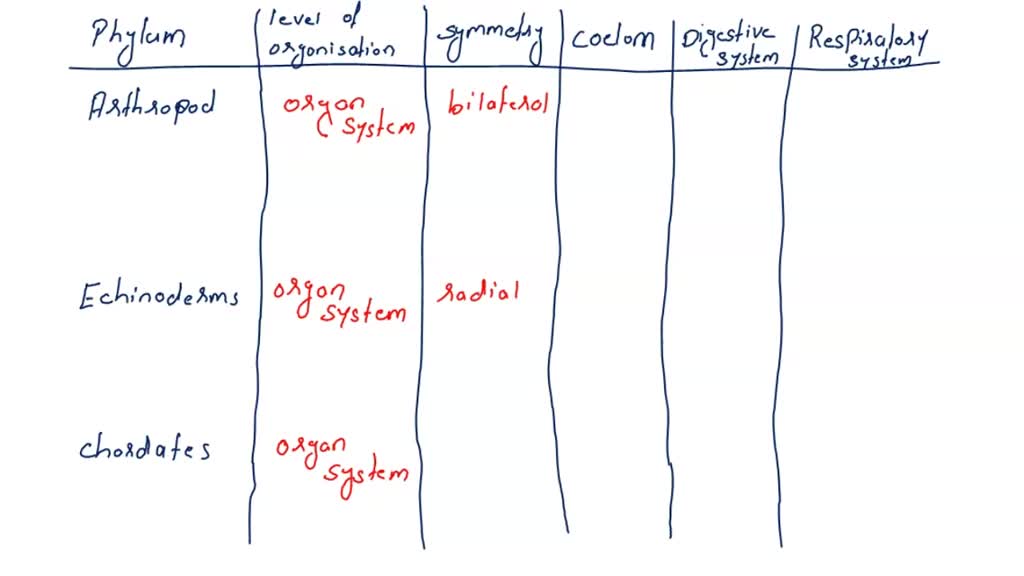 Phylum
level of
organisation
symmetry
coelom
Digestive
system
Respiratory
system
Arthropod
organ
system
bilateral
Echinoderms
organ
system
radial
chordates
organ
system